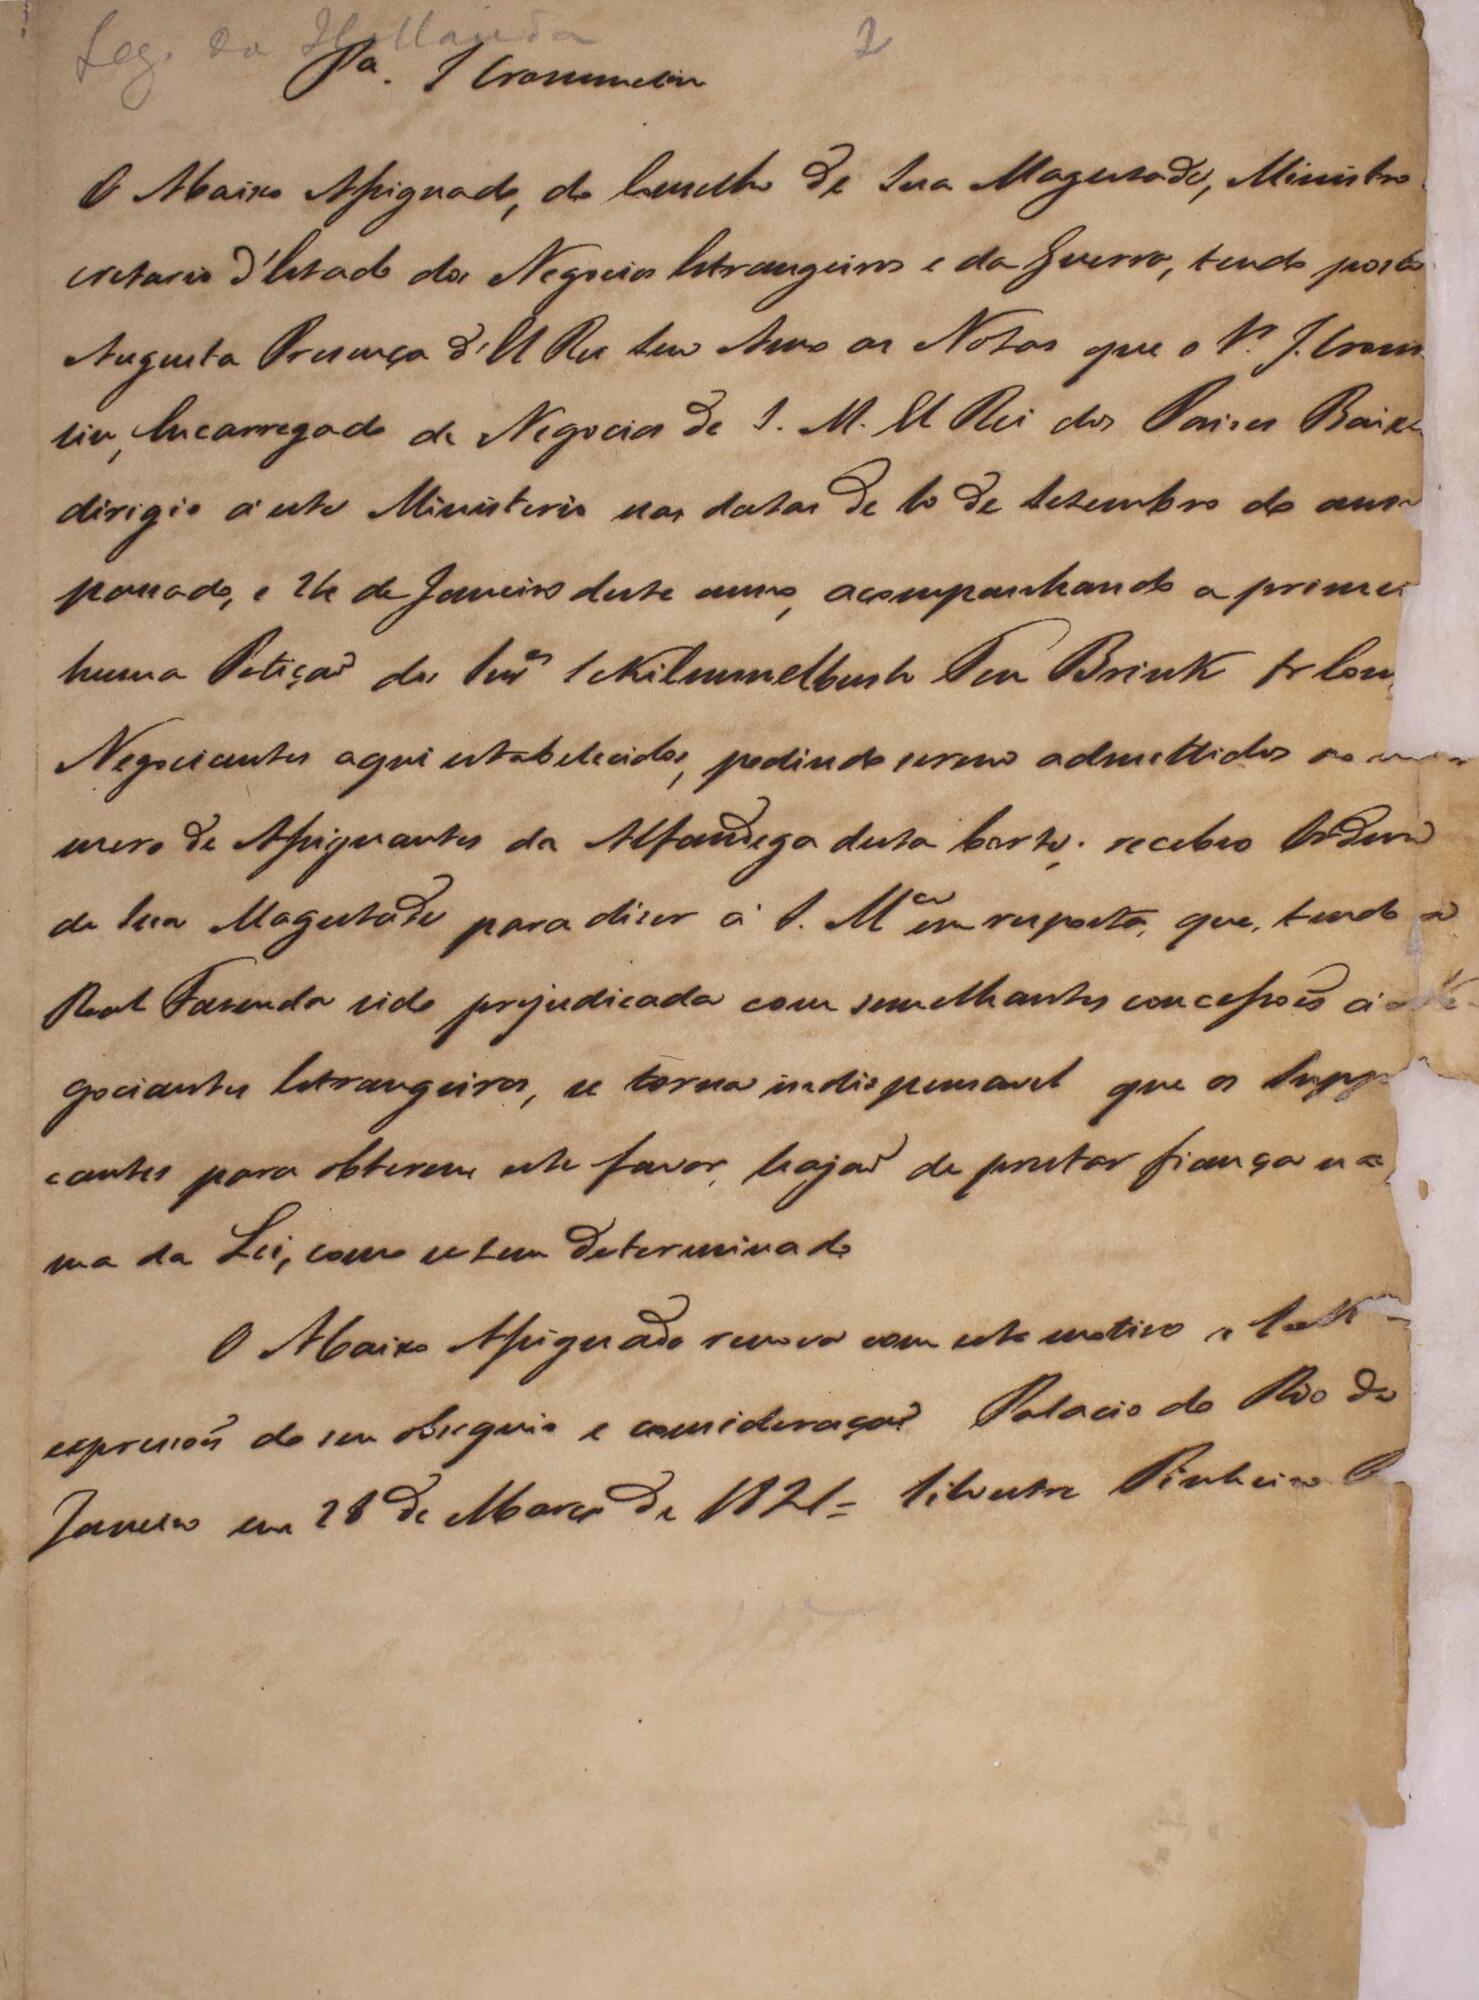 Leg. da Hollanda 2
Pa. J Crommelin
O Abaixo Assignado, do Conselho de Sua Magestade, Ministro
cretario d'Estado dos Negocios Estrangeiros e da Guerra, tendo posto
Augusta Presença d'El Rei Seu Amo as Notas que o Sr. J. Crom
lin, Encarregado de Negocios de S. M. El Rei dos Paizes Baixo
dirigio a este Ministerio nas datas de 10 de Setembro do anno
passado, e 24 de Janeiro deste anno, acompanhando a primei
huma Petiçaõ dos Snres Schilmmelbush Ten Brink & Com
Negociantes aqui estabelecidos, pedindo serem admettidos ao
mero de Assignantes da Alfandega desta Corte; recebeo Ordem
de Sua Magestade para dizer a S. Mce em resposta, que, tendo a
Real Fazenda sido prejudicada com semelhantes concessoẽs a Ne
gociantes Estrangeiros, se torna indispensavel que os Supp
cantes para obterem este favor, hajaõ de prestar fiança na
ma da Lei, como se tem determinado
O Abaixo Assignado renova com este motivo as
expressoẽs do seu obsequio e consideraçaõ Palacio do Rio de
Janeiro em 28 de Março de 1821 = Silvestre Pinheiro